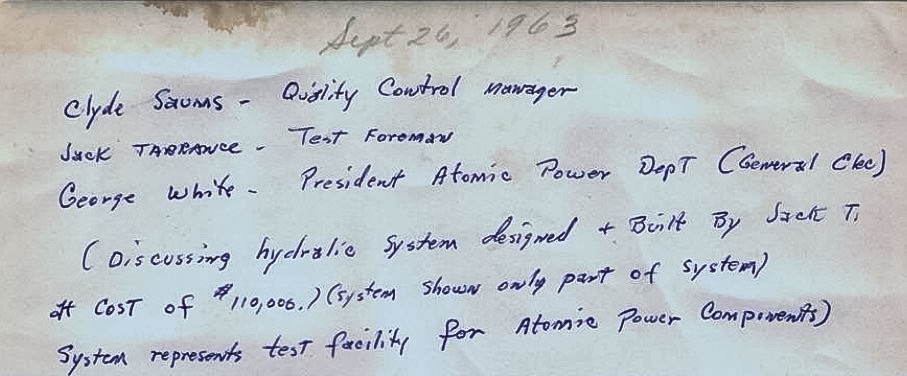 Sept 26, 1963
Clyde Saums - Quality Control Manager
Jack TARRANCE - Test Foreman
George White - President Atomic Power Dept (General Elec)
(Discussing hydralic System designed + Built By Jack T.
At Cost of $110,000.) (System shown only part of system)
System represents test facility for Atomic Power Components)